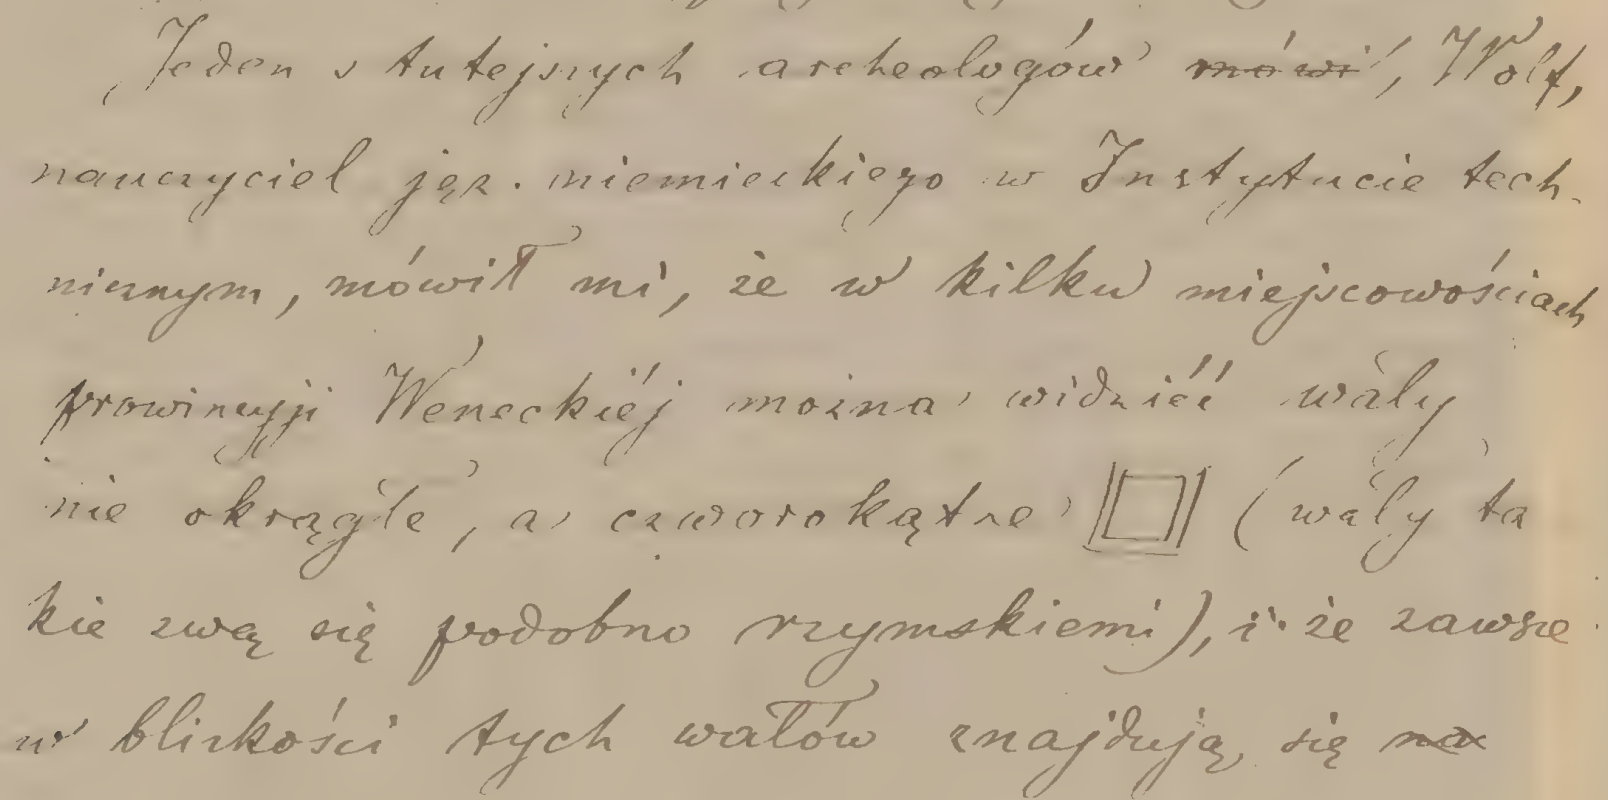 Jeden z tutejszych archeologów mówi, Wolf,
nauczyciel jęz. niemieckiego w Instytucie tech-
nicznym, mówił mi, że w kilku miejscowościach
prowincyji Weneckiéj można widzieć wały
nie okrągłe, a czworokątne (wały ta
kie zwą się podobno rzymskiemi), i że zawsze
w blizkości tych wałów znajdują się na